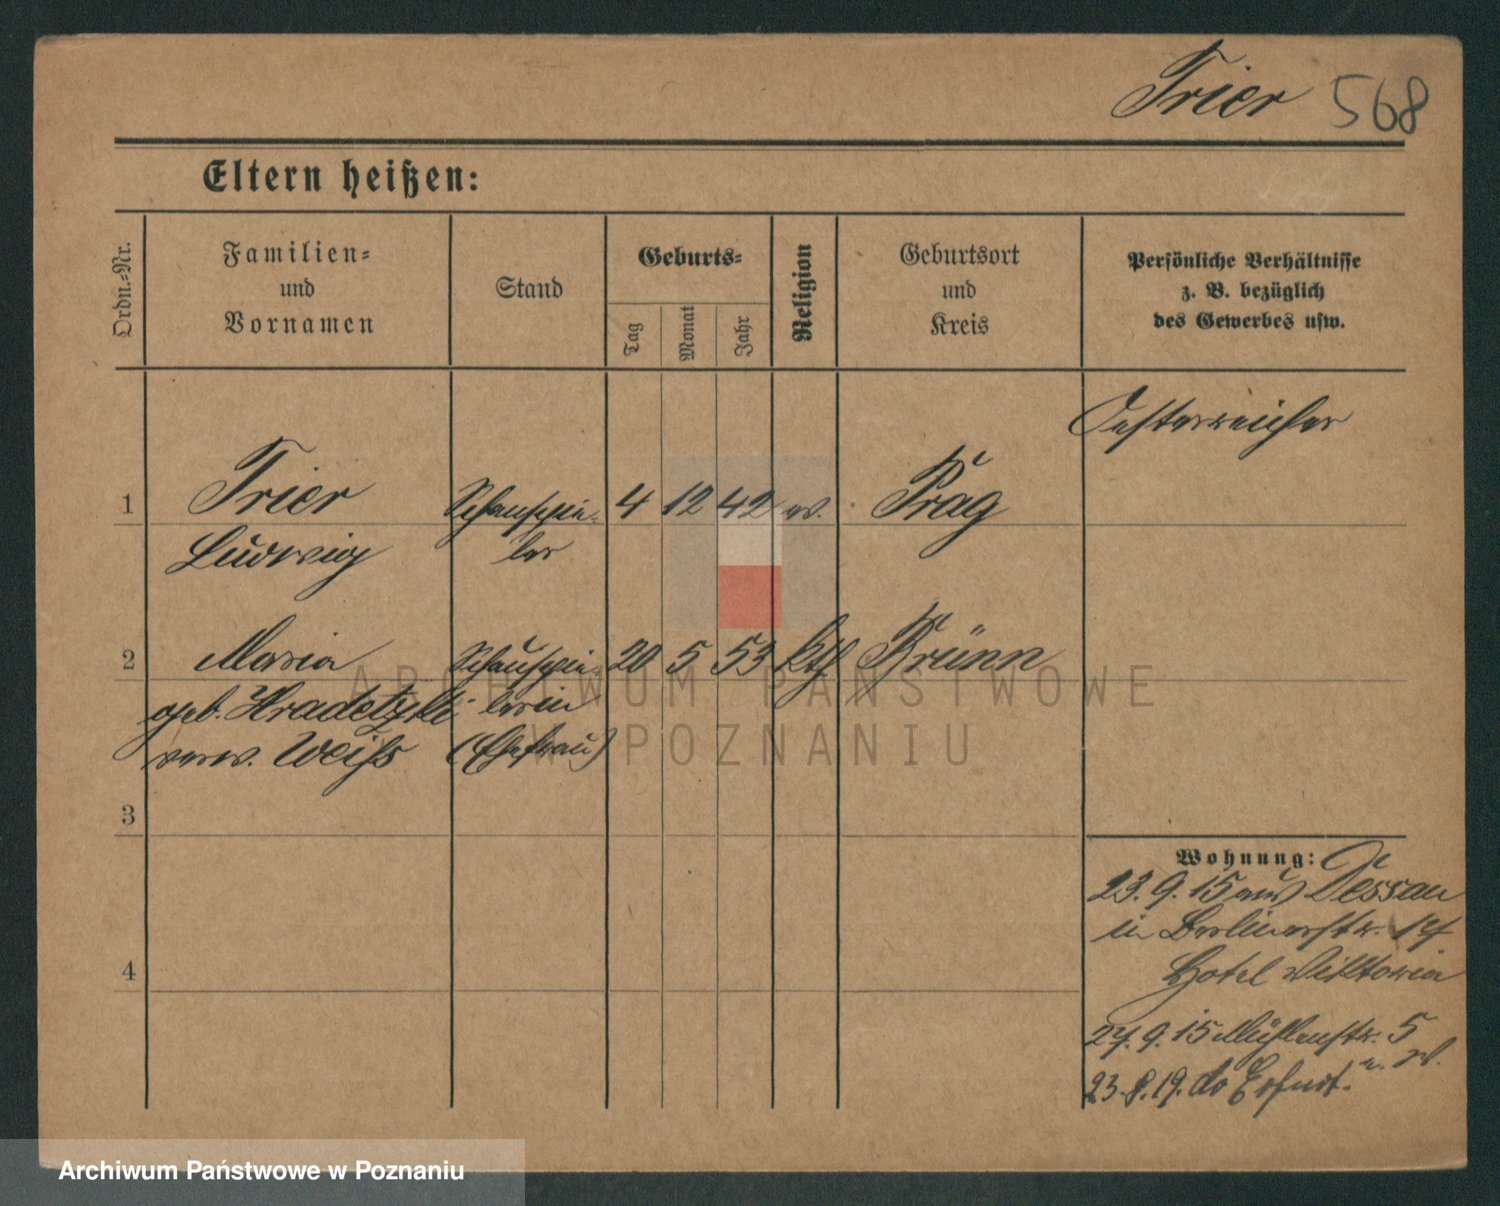 Trier 568
Eltern heißen:
Ordn.-Nr.
Familien-
und
Vornamen
Stand
Geburts-
Tag
Monat
Jahr
Religion
Geburtsort
und
Kreis
Persönliche Verhältnisse
z. B. bezüglich
des Gewerbes usw.
Oesterreicher
1 Trier Schauspie- 4 12 42 ev. Prag
Ludwig ler
2 Maria Schauspie- 20 5 53 kth Brünn
geb. Hradetzki lerin
verw. Weiss (Ehefrau)
3
4
Wohnung:
23. 9. 15 aus Dessau
in Berlinerstr. 17
Hotel Viktoria
27. 9. 15 Mühlenstr. 5
23. 8. 19. do Erfurt.
ARCHIWUM PAŃSTWOWE
W POZNANIU
Archiwum Państwowe w Poznaniu